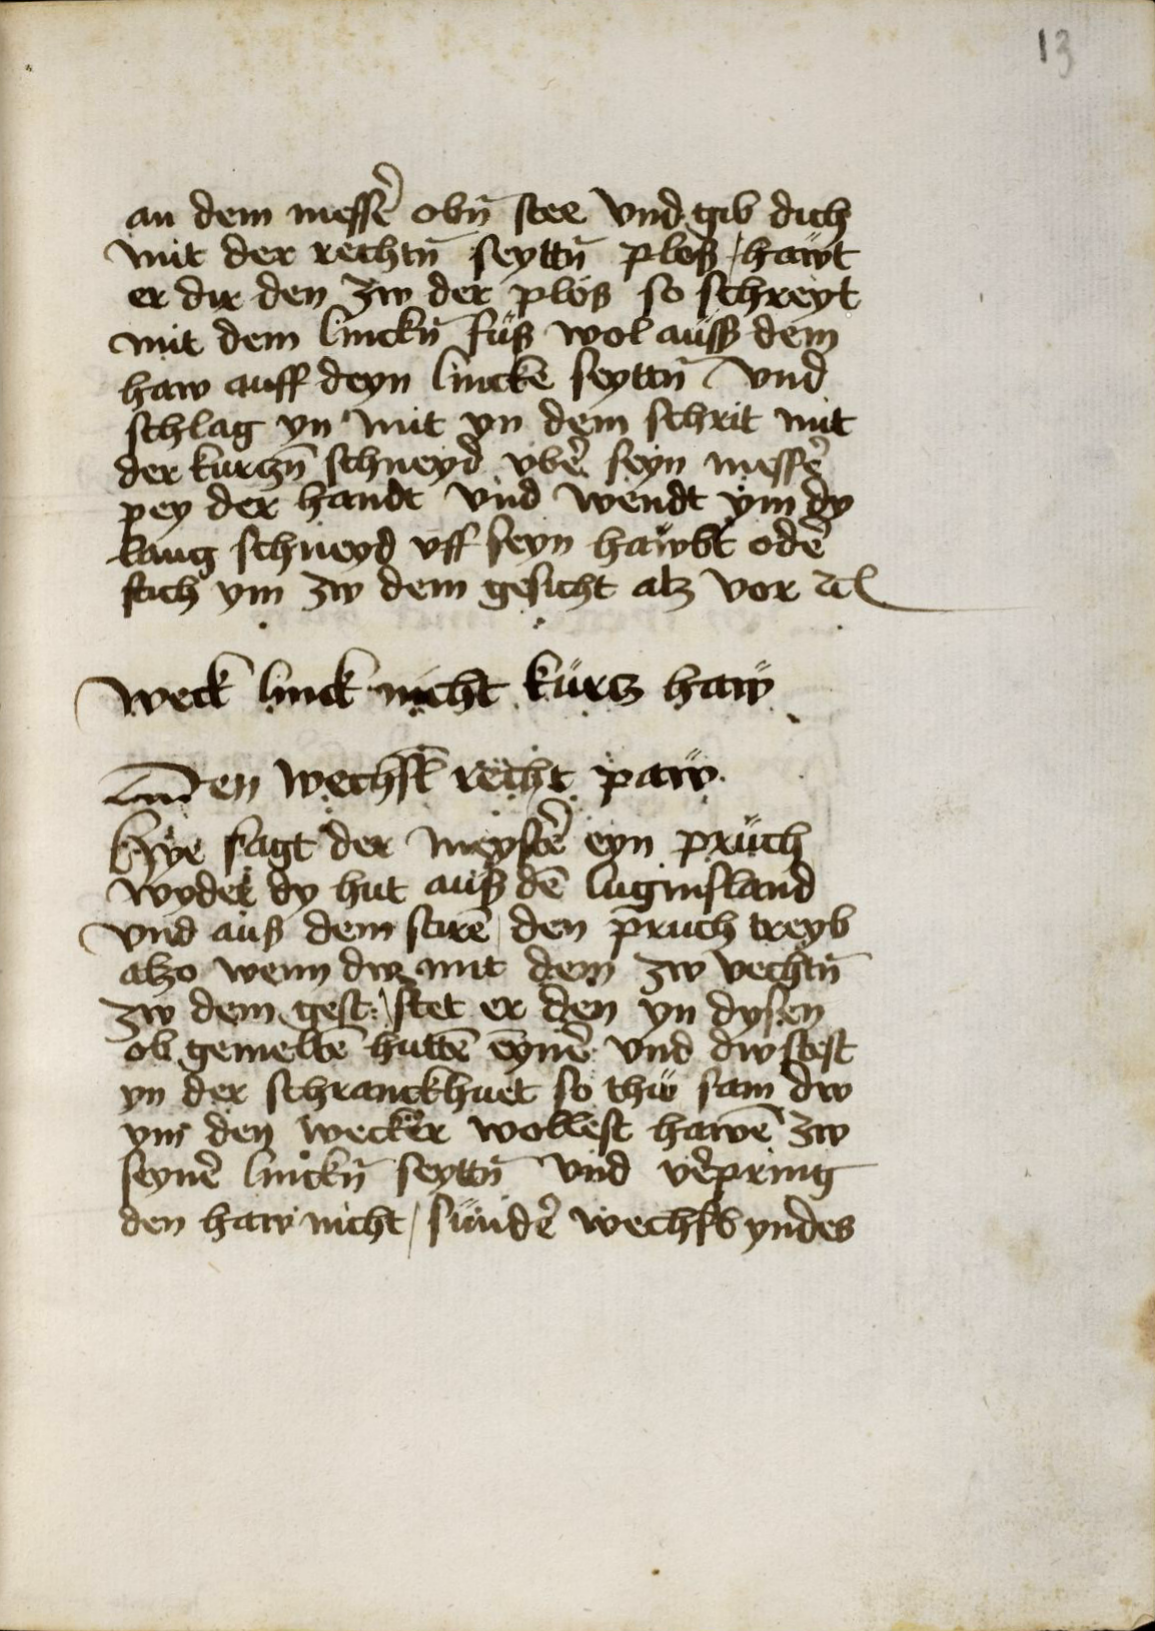 13
an dem messer̄ obn̄ stee Vnd gib dich
mit der rechtn̄ seyttn̄ plos / hawt
er dir den zw der plös so schreyt
mit dem linckn̄ füß wol auss dem
haw auff deyn linckē seyttn̄ Vnd
schlag yn mit yn dem schrit mit
der kurtzn̄ schneyd vbē seyn messē
pey der handt Vnd wendt ym dy
lang schneyd vff seyn hawbt odē
stich ym zw dem gesicht alz vor ꝛc
Weck linck nicht kürtz haw
Im̄en wechsl̄ recht paw
Hye sagt der meystē eyn prüch
wyder dy hut auß dē luginsland
vnd auß dem stirē / den pruch treyb
alzo wenn dw mit dem zw vechtn̄
zw dem gest: / stet er den yn dysen
ob gemeltē huttē eynē vnd dw stest
yn der schranckhuet so thw sam dw
ym den wecker wollest hawē zw
seynē linckn̄ seyttn̄ Vnd vēpring
den haw nicht / sündē wechsl yndes